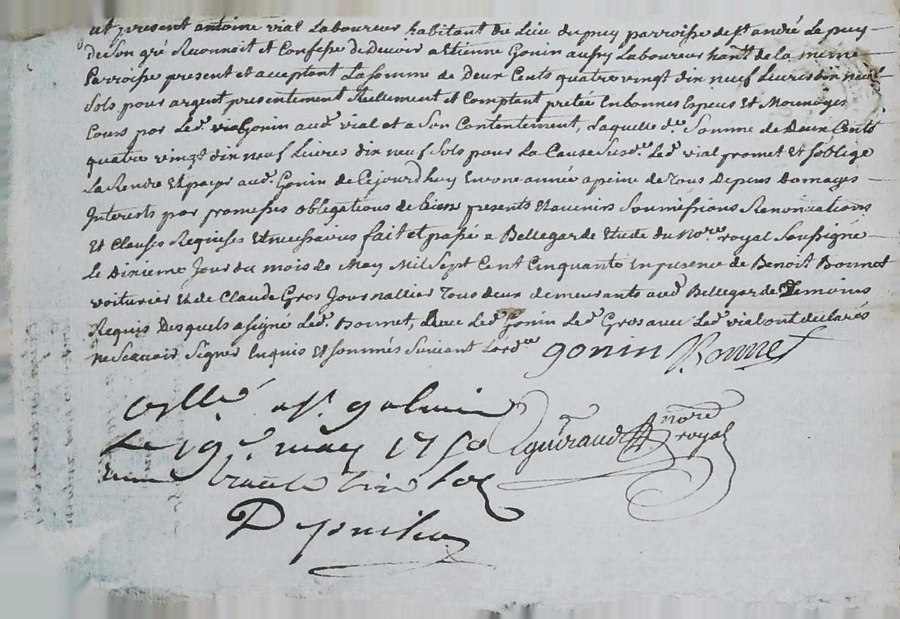 ut present antoine vial Laboureur habitant du Lieu du puy parroisse de st andré Le puy
de Son gré Reconnoit et Confesse de devoir a Etienne Gonin aussy Laboureur hant. de la même
Parroisse present et acceptant La somme de Deux Cents quatre vingt dix neuf Livres dix neuf
Sols pour argent presentement Réellement et Comptant pretée En bonnes Especes Et Monnoyes
Cours par Led. Gonin aud. vial et a Son Contentement, Laquelle de. Somme de Deux Cents
quatre vingt dix neuf Livres dix neuf Sols pour La Cause Susd. Led. vial promet Et s'oblige
La Rendre Et payer aud. Gonin de Cejourdhuy En une année a peine de tous Depens Domages
Interests par promesses obligations de biens presents Et avenirs Soumissions Renonciations
Et Clauses Requises Et necessaires fait et passé a Bellegarde Etude du Nore. royal Soussigné
Le Dixieme Jour du mois de May Mil Sept Cent Cinquante En presence de Benoit Bonnet
voiturier Et de Claude Gros Journallier Tous deux demeurants aud. Bellegarde Temoins
Requis Desquels a signé Led. Bonnet, avec Led. Gonin Led. Gros avec Led. vial ont declarés
ne Scavoir Signer Enquis Et sommés Suivant Lordce. gonin Bonnet
Collé a st. galmier
Le 19e. may 1750 guiraud nore royal
trente